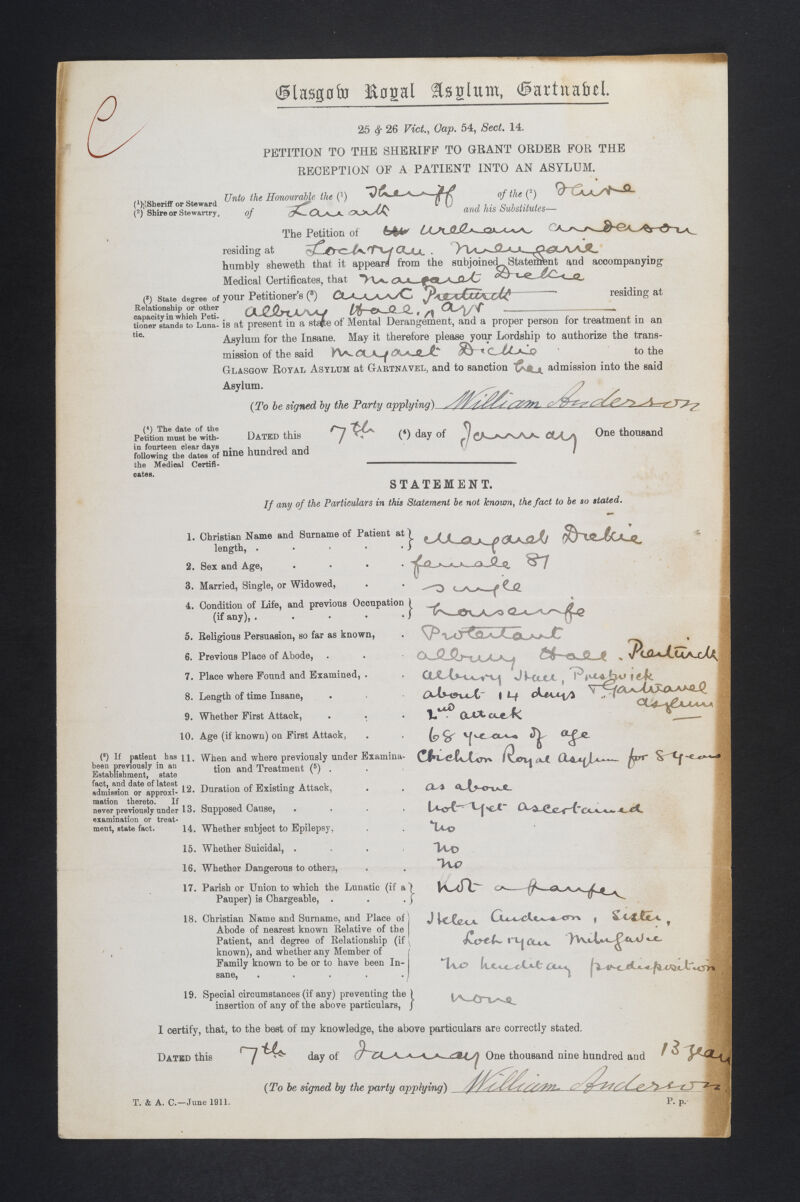 C
Glasgow Royal Asylum, Gartnabel.
25 & 26 Vict., Cap. 54, Sect. 14.
PETITION TO THE SHERIFF TO GRANT ORDER FOR THE
RECEPTION OF A PATIENT INTO AN ASYLUM.
(¹) Sheriff or Steward
(²) Shire or Stewartry.
Unto the Honourable the (¹) Sheriff of the (²) Shire
of Lanark and his Substitutes—
The Petition of William Anderson
residing at Lochryan. Milngavie
humbly sheweth that it appears from the subjoined Statement and accompanying
Medical Certificates, that Margaret Dickie
(³) State degree of
Relationship or other
capacity in which Peti-
tioner stands to Luna-
tic.
your Petitioner's (³) aunt Prestwick residing at
Albury Hall, Ayr
is at present in a state of Mental Derangement, and a proper person for treatment in an
Asylum for the Insane. May it therefore please your Lordship to authorize the trans-
mission of the said Margaret Dickie to the
GLASGOW ROYAL ASYLUM at GARTNAVEL, and to sanction her admission into the said
Asylum.
(To be signed by the Party applying) William Anderson
(⁴) The date of the
Petition must be with-
in fourteen clear days
following the dates of
the Medical Certifi-
cates.
DATED this 7th (⁴) day of January One thousand
nine hundred and
STATEMENT.
If any of the Particulars in this Statement be not known, the fact to be so stated.
1. Christian Name and Surname of Patient at
length, . . . . . Margaret Dickie
2. Sex and Age, . . . . female 81
3. Married, Single, or Widowed, . . single
4. Condition of Life, and previous Occupation
(if any), . . . . . housewife
5. Religious Persuasion, so far as known, . Protestant
6. Previous Place of Abode, . . . Albury Hall. Prestwick
7. Place where Found and Examined, . . Albury Hall, Prestwick
& Gartnavel
asylum
8. Length of time Insane, . . . about 14 days
9. Whether First Attack, . . . 2nd attack
10. Age (if known) on First Attack, . . 68 years of age
(⁵) If patient has
been previously in an
Establishment, state
fact, and date of latest
admission or approxi-
mation thereto. If
never previously under
examination or treat-
ment, state fact.
11. When and where previously under Examina-
tion and Treatment (⁵) . . . Crichton Royal Asylum for 8 years
12. Duration of Existing Attack, . . as above
13. Supposed Cause, . . . . not yet ascertained
14. Whether subject to Epilepsy, . . no
15. Whether Suicidal, . . . . no
16. Whether Dangerous to others, . . no
17. Parish or Union to which the Lunatic (if a
Pauper) is Chargeable, . . . not a pauper
18. Christian Name and Surname, and Place of
Abode of nearest known Relative of the
Patient, and degree of Relationship (if
known), and whether any Member of
Family known to be or to have been In-
sane, . . . . .
Helen Anderson, sister,
Lochryan Milngavie
no hereditary predisposition
19. Special circumstances (if any) preventing the
insertion of any of the above particulars, none
I certify, that, to the best of my knowledge, the above particulars are correctly stated.
DATED this 7th day of January One thousand nine hundred and 13 years
(To be signed by the party applying) William Anderson
T. & A. C.—June 1911. P. p.